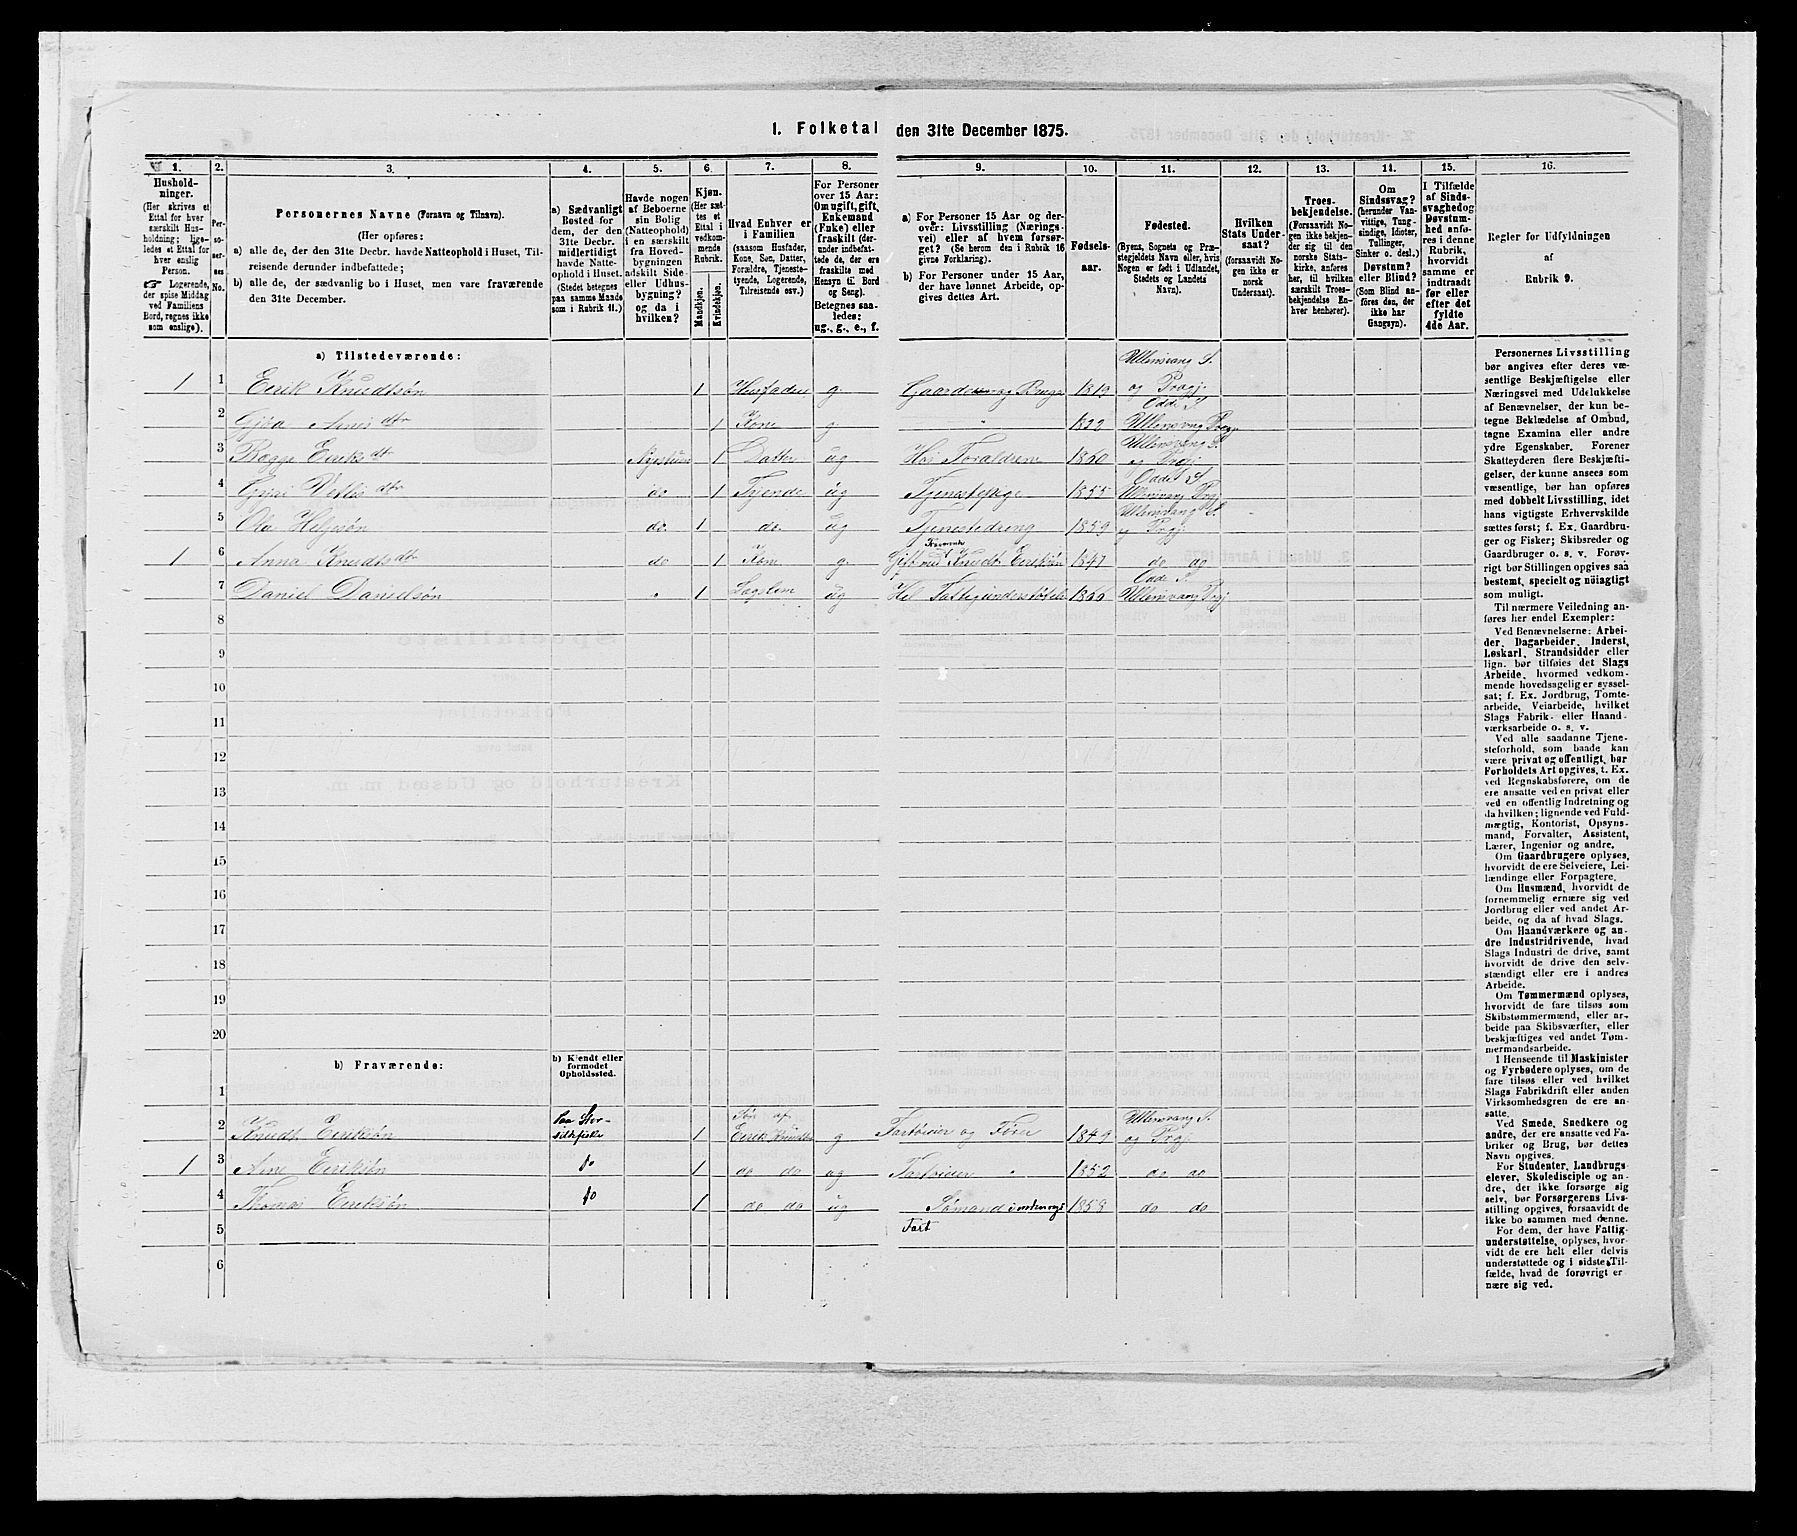 1. Folketal den 31te December 1875.
1. 2. 3. 4. 5. 6. 7. 8. 9. 10. 11. 12. 13. 14. 15. 16.
Husholdninger.
(Her skrives et
Ettal for hver
særskilt Husholdning;
ligeledes et Ettal for
hver enslig
Person.
☞ Logerende,
der spise Middag
ved Familiens
Bord, regnes ikke
som enslige).
Personernes No.
Personernes Navne (Fornavn og Tilnavn).
(Her opføres:
a) alle de, der den 31te Decbr. havde Natteophold i Huset, Tilreisende derunder indbefattede;
b) alle de, der sædvanlig bo i Huset, men vare fraværende
den 31te December.
a) Sædvanligt
Bosted for
dem, der den
31te Decbr.
midlertidigt
havde Natteophold i Huset.
(Stedet betegnes
paa samme Maade
som i Rubrik 11.)
Havde nogen
af Beboerne
sin Bolig
(Natteophold)
i en særskilt
fra Hovedbygningen
adskilt Side-
eller Udhusbygning?
og da i
hvilken?
Kjøn.
(Her sættes et
Ettal i
vedkommende
Rubrik.
Mandkjøn.
Kvindekjøn.
Hvad Enhver er
i Familien
(saasom Husfader,
Kone, Søn, Datter,
Forældre, Tjenestetyende, Logerende,
Tilreisende osv.)
For Personer
over 15 Aar:
Om ugift, gift,
Enkemand
(Enke) eller
fraskilt (derunder indbefattede de, der ere
fraskilte med
Hensyn til Bord
og Seng).
Betegnes saaledes:
ug., g., e., f.
a) For Personer 15 Aar og derover: Livsstilling (Næringsvei) eller af hvem forsørget? (Se herom den i Rubrik 16
givne Forklaring).
b) For Personer under 15 Aar,
der have lønnet Arbeide, opgives dettes Art.
Fødselsaar.
Fødested.
(Byens, Sognets og Præstegjeldets Navn, eller, hvis
Nogen er født i Udlandet,
Stedets og Landets
Navn).
Hvilken
Stats Undersaat?
(forsaavidt Nogen ikke er
norsk
Undersaat).
Troesbekjendelse.
(Forsaavidt Nogen ikke bekjender sig til den
norske Statskirke, anføres
her, til hvilken
særskilt Troesbekjendelse Enhver henhører).
Om
Sindssvag?
(herunder Vanvittige, Tungsindige, Idioter,
Tullinger,
Sinker o. desl.)
Døvstum?
eller Blind?
(Som Blind anføres den, der
ikke har
Gangsyn).
I Tilfælde
af Sindssvaghed og
Døvstumhed anføres i denne
Rubrik,
hvorvidt
samme er
indtraadt
før eller
efter det
fyldte
4de Aar.
Regler for Udfyldningen
af
Rubrik 9.
a) Tilstedeværende:
1 1 Eerik Knudtsøn 1 Husfader g. Gaardbruger 1819 Ullensvang S. og Prgj.
2 Arnes dtr 1 Kone g. " 1822 Odde S. Ullensvang Prgj
3 Eeriks dtr 1 Datter ug Hos Foraldrene Ullensvang S. og Prgj.
4 do 1 Tyende ug Tjenestepige 1855 Odde S. Ullensvang Prgj
5 Ola Helgesøn do. 1 do. ug Tjenestedreng 1859 Ullensvang S. og Prgj
1 6 Anna Knudts dtr do 1 Kone g. Gift med Knudt Eeriksøn 1847 do do
7 Daniel Danielsøn " 1 Lægslem ug Hel Fattigunderstøtelse Odde S. Ullensvang Prgj
8
9
10
11
12
13
14
15
16
17
18
19
20
b) Fraværende:
b) Kjendt eller
formodet
Opholdssted.
1
2 Knudt Eeriksøn Paa Storsildfiske 1 Søn af Eerik Knudtsøn g Fartøieier og Fører 1849 Ullensvang S. og Prgj
1 3 Arne Eeriksøn do 1 do do ug Fartøieier " 1852 do do
4 Thomas Eeriksøn do 1 do do ug Sømand indenrigs Fart 1858 do do
5
6
Personernes Livsstilling
bør angives efter deres væsentlige Beskjæftigelse eller
Næringsvei med Udelukkelse
af Benævnelser, der kun betegne Beklædelse af Ombud,
tagne Examina eller andre
ydre Egenskaber. Forener
Skatteyderen flere Beskjæftigelser, der kunne ansees som
væsentlige, bør han opføres
med dobbelt Livsstilling, idet
hans vigtigste Erhvervskilde
sættes først; f. Ex. Gaardbruger og Fisker; Skibsreder og
Gaardbruger o. s. v. Forøvrigt bør Stillingen opgives saa
bestemt, specielt og nøiagtigt
som muligt.
Til nærmere Veiledning anføres her endel Exempler:
Ved Benævnelserne: Arbeider, Dagarbeider, Inderst,
Løskarl, Strandsidder eller
lign. bør tilføies det Slags
Arbeide, hvormed vedkommende hovedsagelig er sysselsat; f. Ex. Jordbrug, Tømtearbeide, Veiarbeide, hvilket
Slags Fabrik- eller Haandværksarbeide o. s. v.
Ved alle saadanne Tjenesteforhold, som baade kan
være privat og offentligt, bør
Forholdets Art opgives, t. Ex.
ved Regnskabsførere, om de
ere ansatte ved en privat eller
ved en offentlig Indretning og
da hvilken; lignende ved Fuldmægtig, Kontorist, Opsynsmand, Forvalter, Assistent,
Lærer, Ingeniør og andre.
Om Gaardbrugere oplyses,
hvorvidt de ere Selveiere, Leilændinge eller Forpagtere.
Om Husmænd, hvorvidt de
fornemmelig ernære sig ved
Jordbrug eller ved andet Arbeide, og da af hvad Slags.
Om Haandværkere og andre Industridrivende, hvad
Slags Industri de drive, samt
hvorvidt de drive den selvstændigt eller ere i andres
Arbeide.
Om Tømmermænd oplyses,
hvorvidt de fare tilsøs som
Skibstømmermænd, eller arbeide paa Skibsværfter, eller
beskjæftiges ved andet Tømmermandsarbeide.
I Henseende til Maskinister
og Fyrbødere oplyses, om de
fare tilsøs eller ved hvilket
Slags Fabrikdrift eller anden
Virksomhedsgren de ere ansatte.
Ved Smede, Snedkere og
andre, der ere ansatte ved Fabriker og Brug, bør dettes
Navn opgives.
For Studenter, Landbrugselever, Skoledisciple og andre, der ikke forsørge sig
selv, bør Forsørgerens Livsstilling opgives, forsaavidt de
ikke bo sammen med denne.
For dem, der have Fattigunderstøttelse, oplyses, hvorvidt de ere helt eller delvis
understøttede og i sidste Tilfælde, hvad de forøvrigt er
nære sig ved.